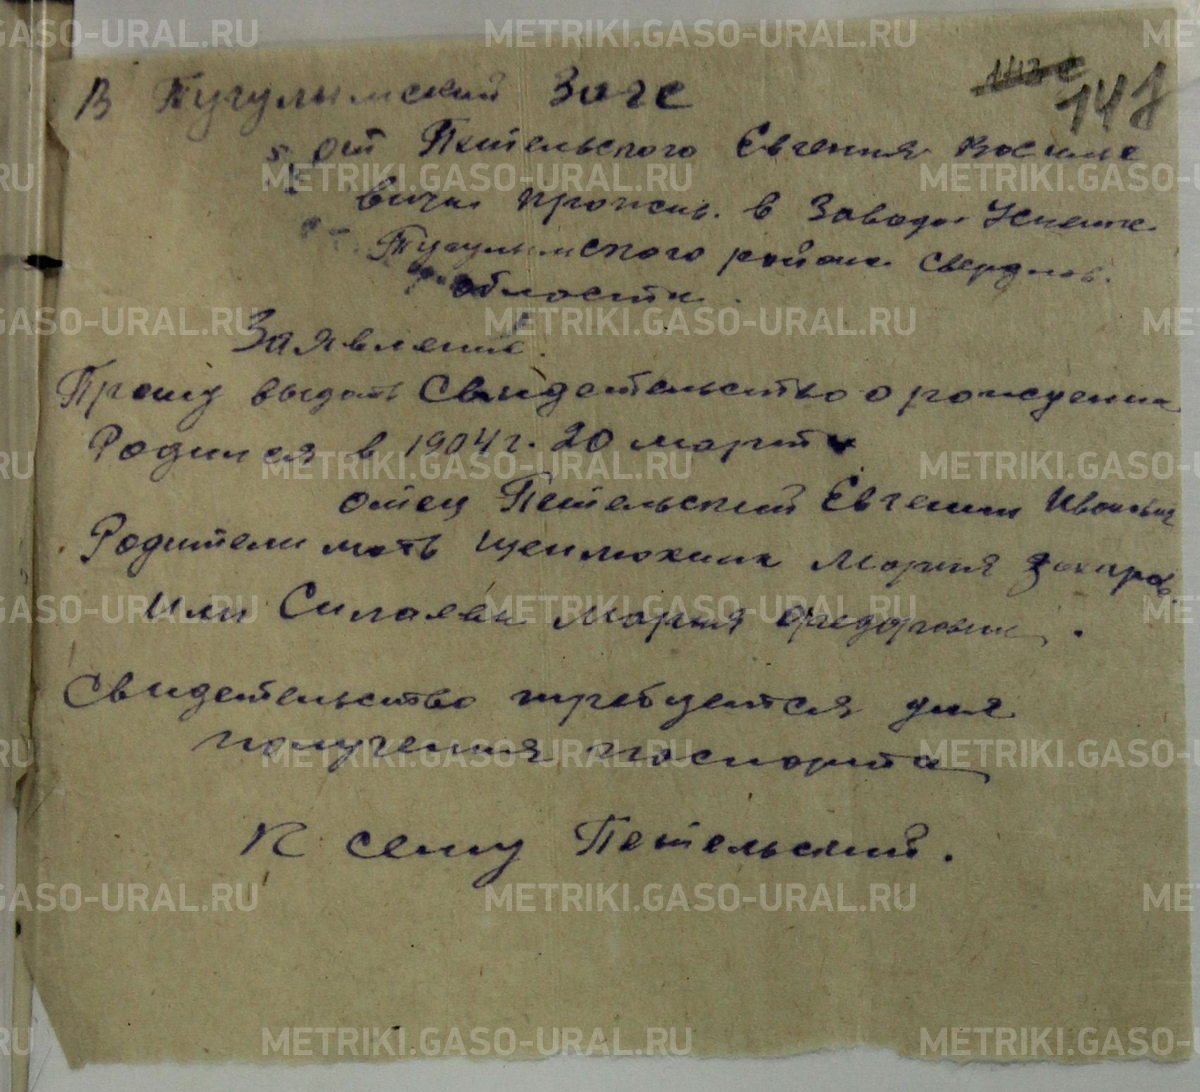 141
В Тугулымский Загс
от Петельского Евгения Василье
вича прожив. в Заводо Успенке
Тугулымского района Свердлов.
области.
Заявление.
Прошу выдать Свидетельство о рождении
Родился в 1904 г. 20 марта
отец Петельский Евгений Иванович
Родители мать Мария Захаров.
или Силаева Мария Федоровна.
Свидетельство требуется для
получения паспорта
К сему Петельский.
METRIKI.GASO-URAL.RU